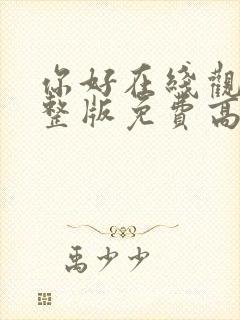 你好在綫觀
整版免費高
禹少少